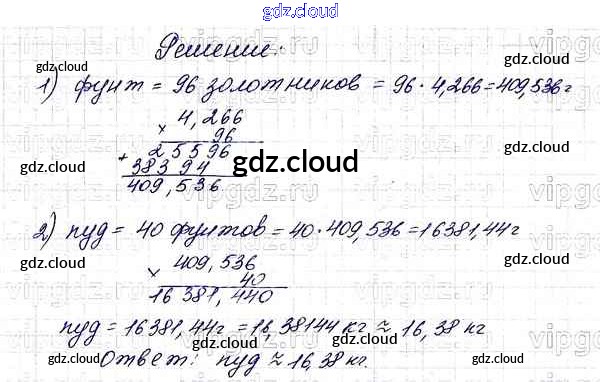 gdz.cloud
Решение:
1) фунт = 96 золотников = 96 · 4,266 = 409,536 г
× 4,266
96
25596
+ 38394
409,536
2) пуд = 40 фунтов = 40 · 409,536 = 16381,44 г
× 409,536
40
16381,440
пуд = 16381,44 г = 16,38144 кг ≈ 16,38 кг
Ответ: пуд ≈ 16,38 кг.
gdz.cloud
gdz.cloud
gdz.cloud
gdz.cloud
gdz.cloud
gdz.cloud
gdz.cloud
gdz.cloud
gdz.cloud
gdz.cloud